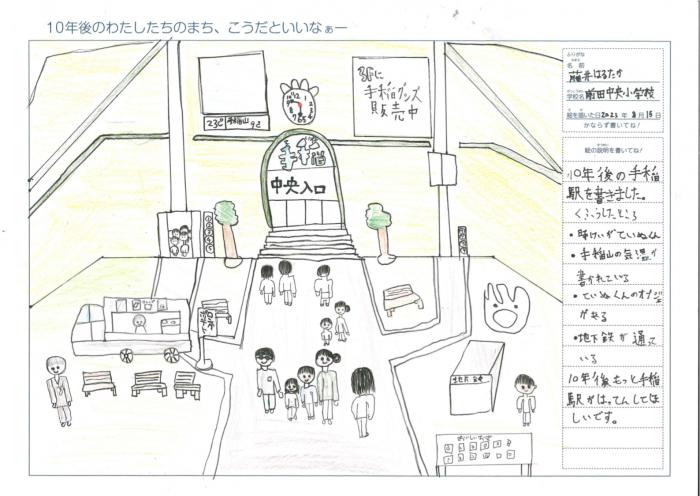 10年後のわたしたちのまち、こうだといいなぁー
駅に
手稲グッズ
販売中
手稲山
手稲
中央入口
地下鉄
ふりがな
名前
藤井はるたか
学校名 前田中央小学校
絵を描いた日2023年8月15日
かならず書いてね!
絵の説明を書いてね!
10年後の手稲
駅を書きました。
くふうしたところ
・時けいがていぬくん
・手稲山の気温が
書かれている
・ていぬくんのオブジェ
がある
・地下鉄が通って
いる
10年後もっと手稲
駅がはってんしてほ
しいです。